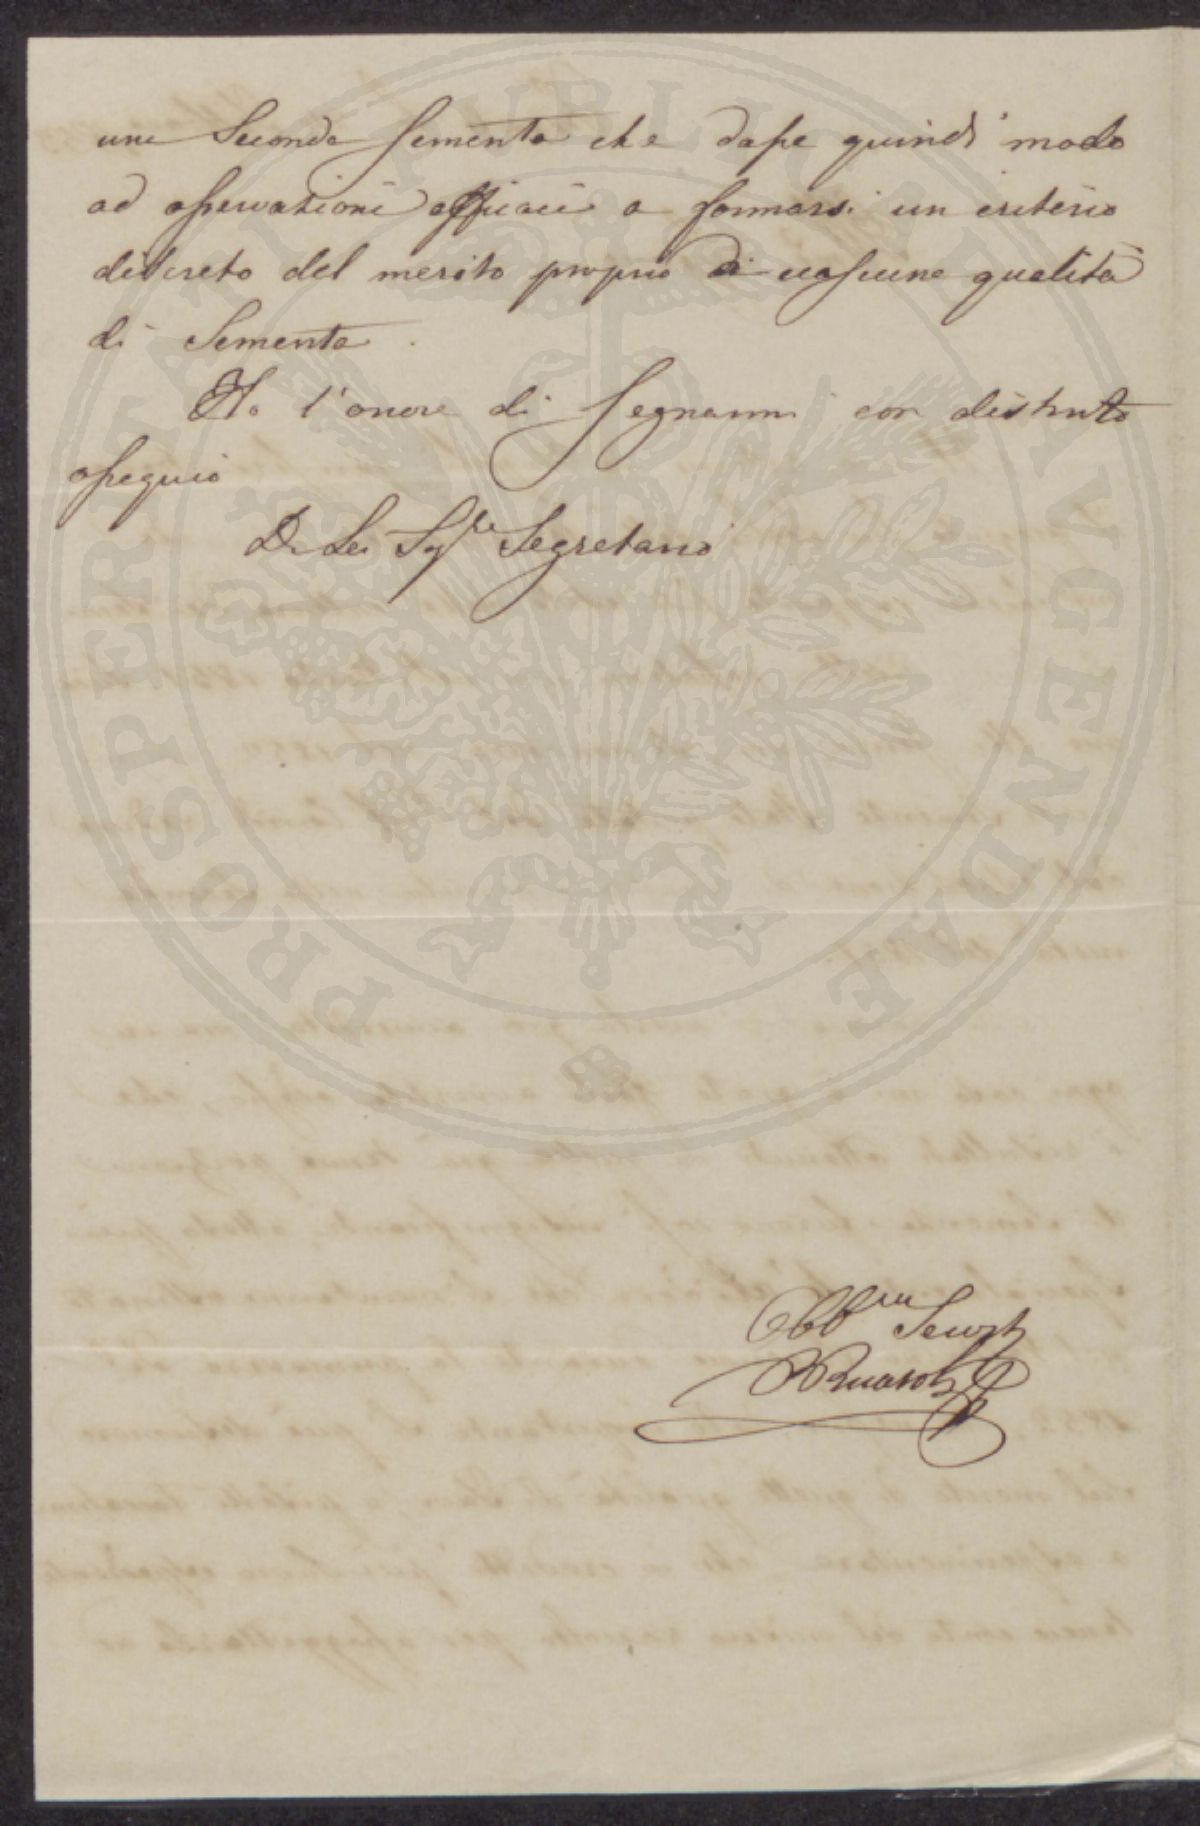 una Seconda Sementa che dasse quindi modo
ad osservazioni efficaci a formarsi un criterio
discreto del merito proprio di ciascuna qualità
di Sementa.
Ho l'onore di segnarmi con distinto
ossequio
Di Lei Sigre Segretario
Obbmo Serv
PROSPERITATI PUBLICAE AVGENDAE